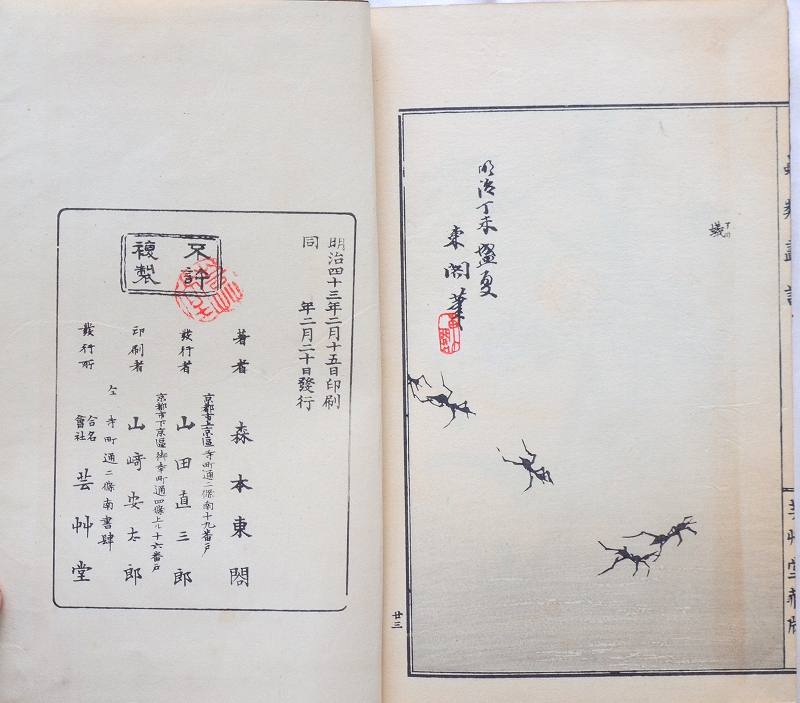 蟻
明治丁未盛夏
東閣筆
芸艸堂蔵版
廿三
明治四十三年二月十五日印刷
同 年二月二十日發行
不許
複製
著者 森本東閣
京都市上京區寺町通二條南十九番戸
發行者 山田直三郎
京都市下京區御幸町通四條上ル十六番戸
印刷者 山﨑安太郎
仝 寺町通二條南書肆
發行所 合名會社 芸艸堂